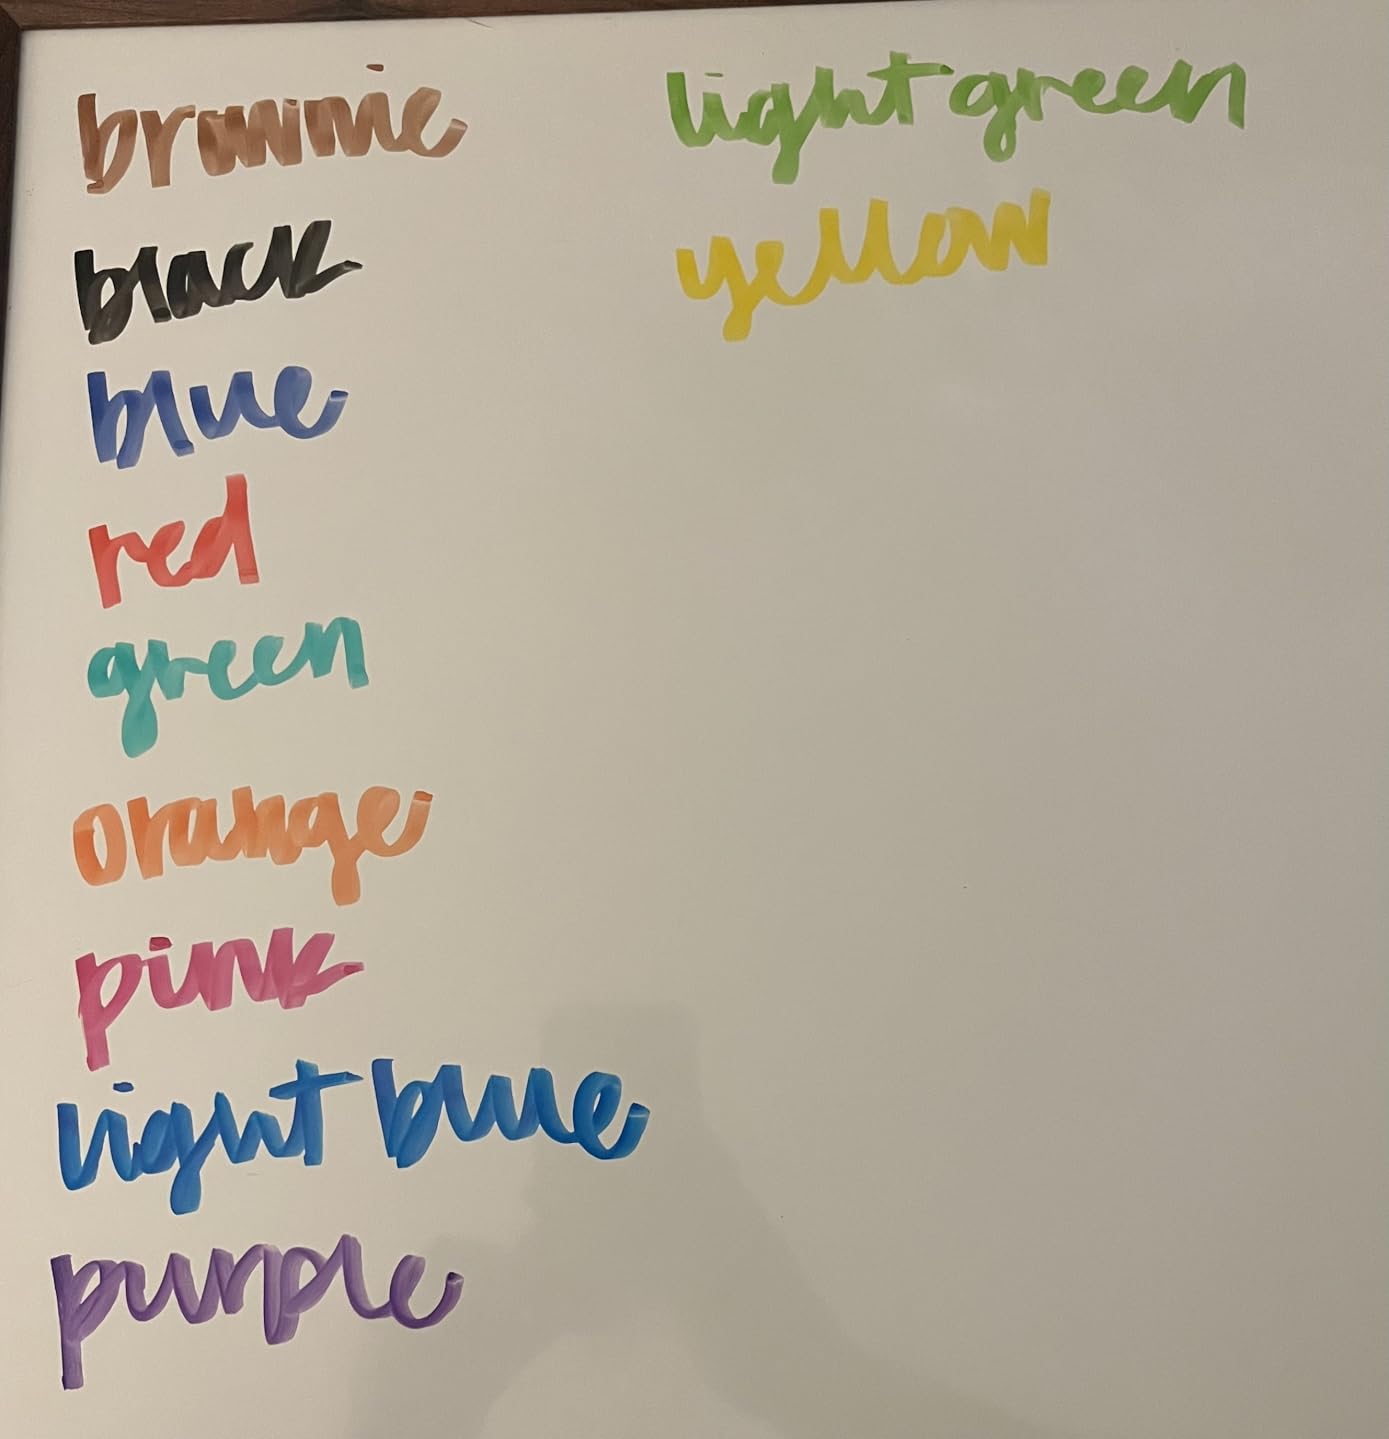 brownie
black
blue
red
green
orange
pink
light blue
purple
light green
yellow